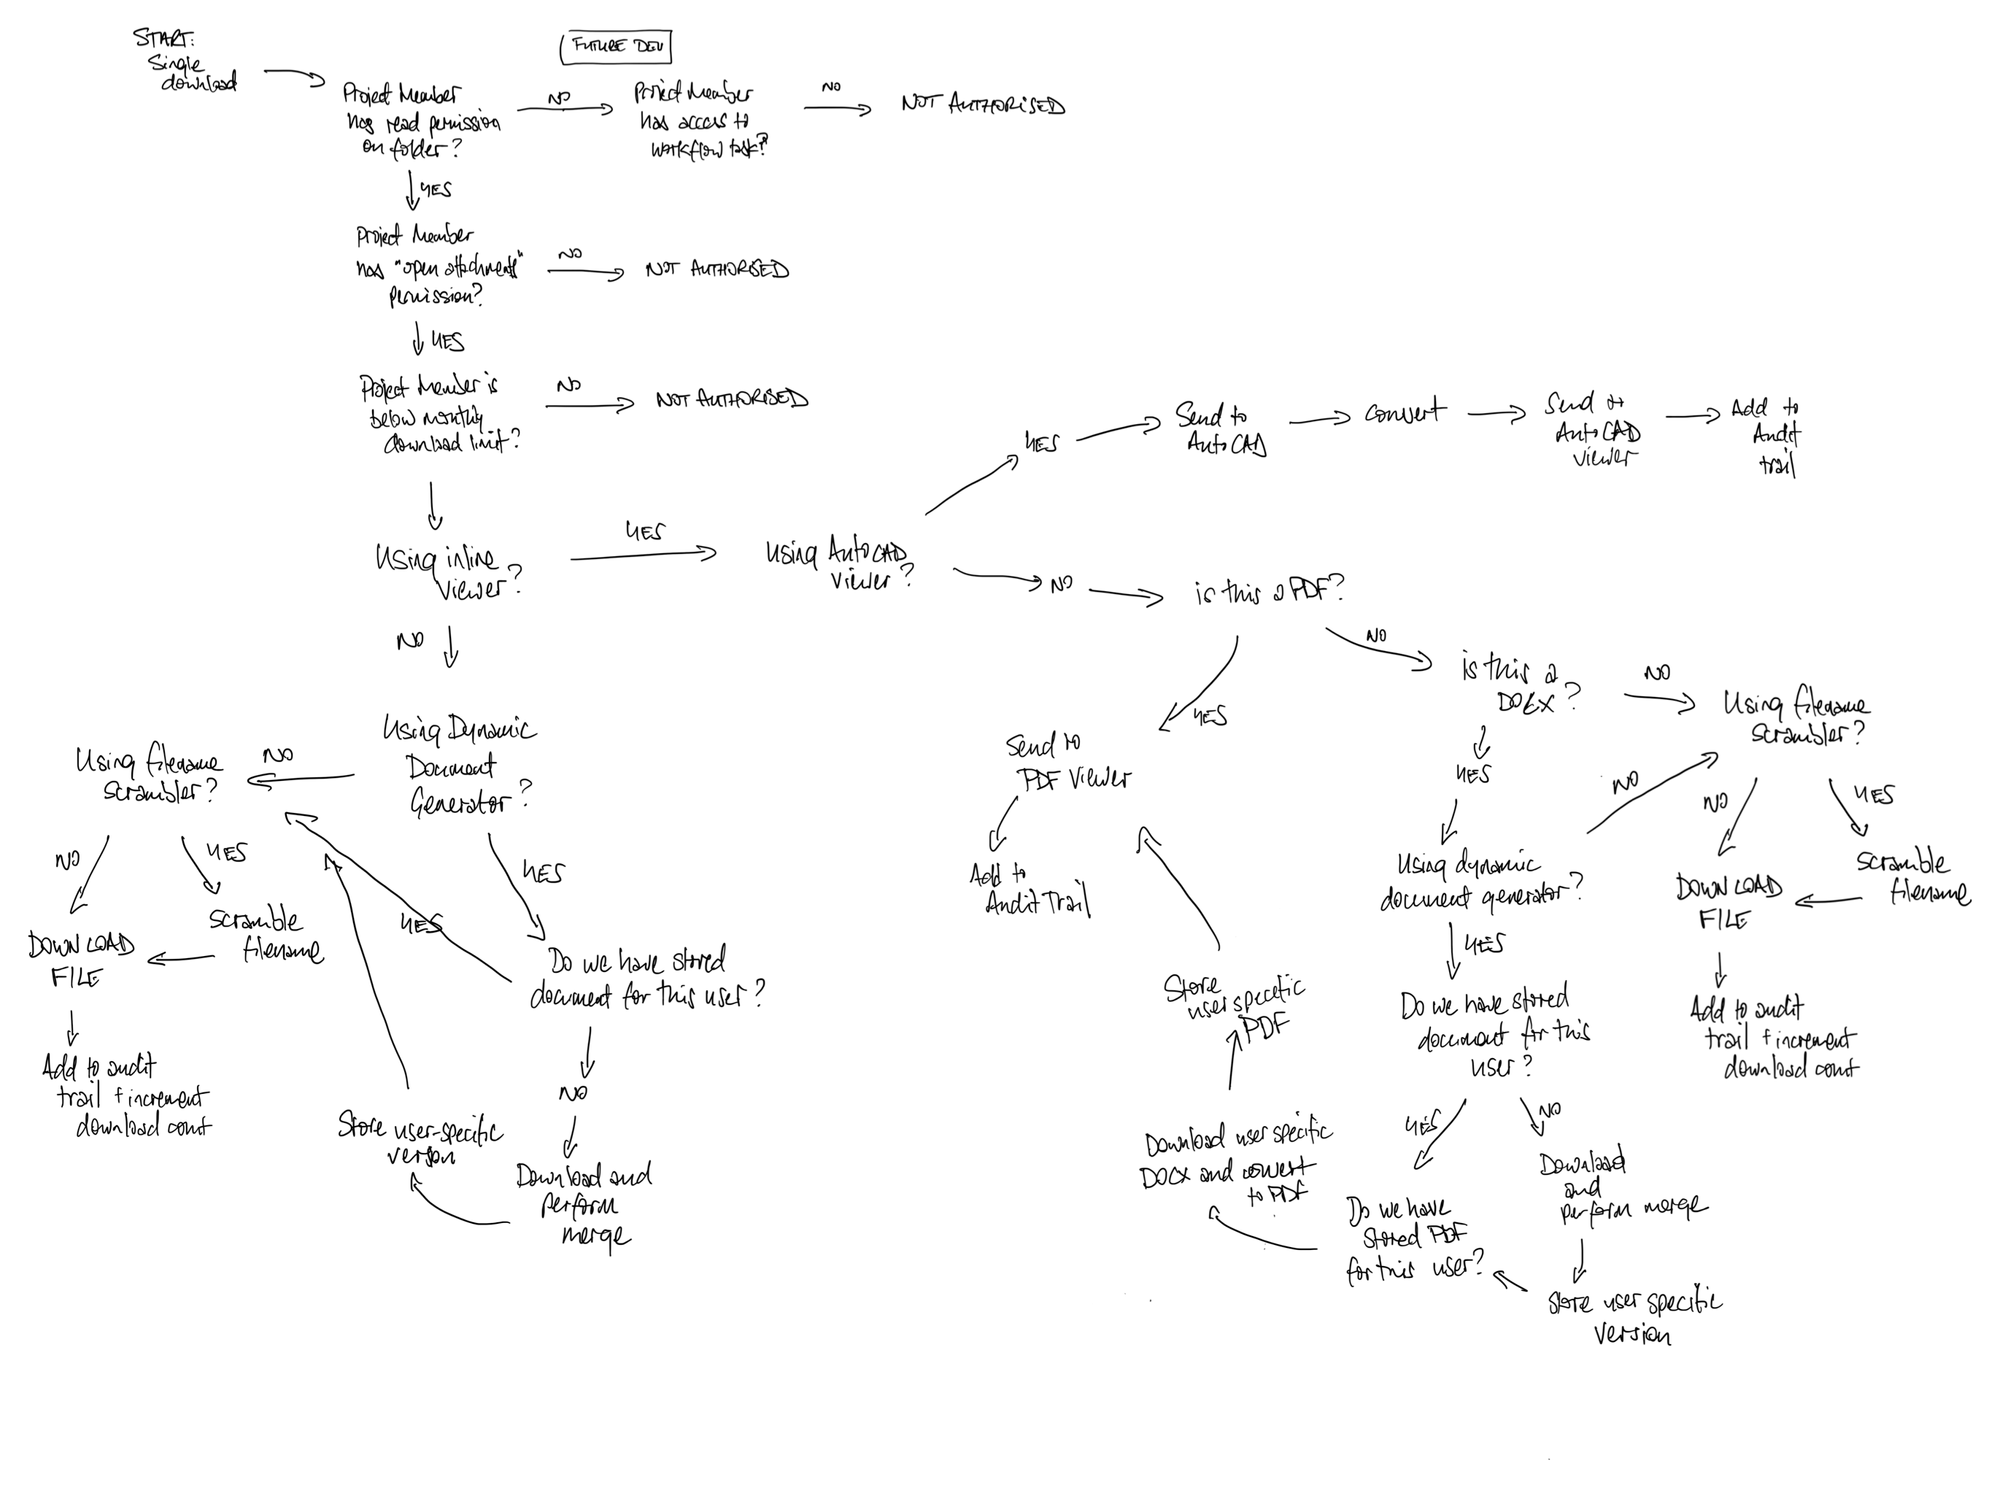 START:
Single
download
FUTURE DEV
Project Member
has read permission
on folder?
NO
Project Member
has access to
workflow task?
NO
NOT AUTHORISED
YES
Project Member
has "open attachments"
permission?
NO
NOT AUTHORISED
YES
Project Member is
below monthly
download limit?
NO
NOT AUTHORISED
Using inline
viewer?
YES
Using AutoCAD
viewer?
YES
Send to
AutoCAD
convert
Send to
AutoCAD
viewer
Add to
Audit
trail
NO
is this a PDF?
NO
is this a
DOCX?
NO
Using filename
scrambler?
NO
YES
Scramble
filename
DOWNLOAD
FILE
Add to audit
trail + increment
download count
YES
Send to
PDF Viewer
Add to
Audit Trail
YES
Using dynamic
document generator?
NO
YES
Do we have stored
document for this
user?
YES
NO
Download
and
perform merge
Store user specific
version
Do we have
stored PDF
for this user?
Download user specific
DOCX and convert
to PDF
Store
user specific
PDF
NO
Using Dynamic
Document
Generator?
NO
Using filename
scrambler?
NO
YES
Scramble
filename
DOWNLOAD
FILE
Add to audit
trail + increment
download count
YES
Do we have stored
document for this user?
YES
NO
Download and
perform
merge
Store user-specific
version